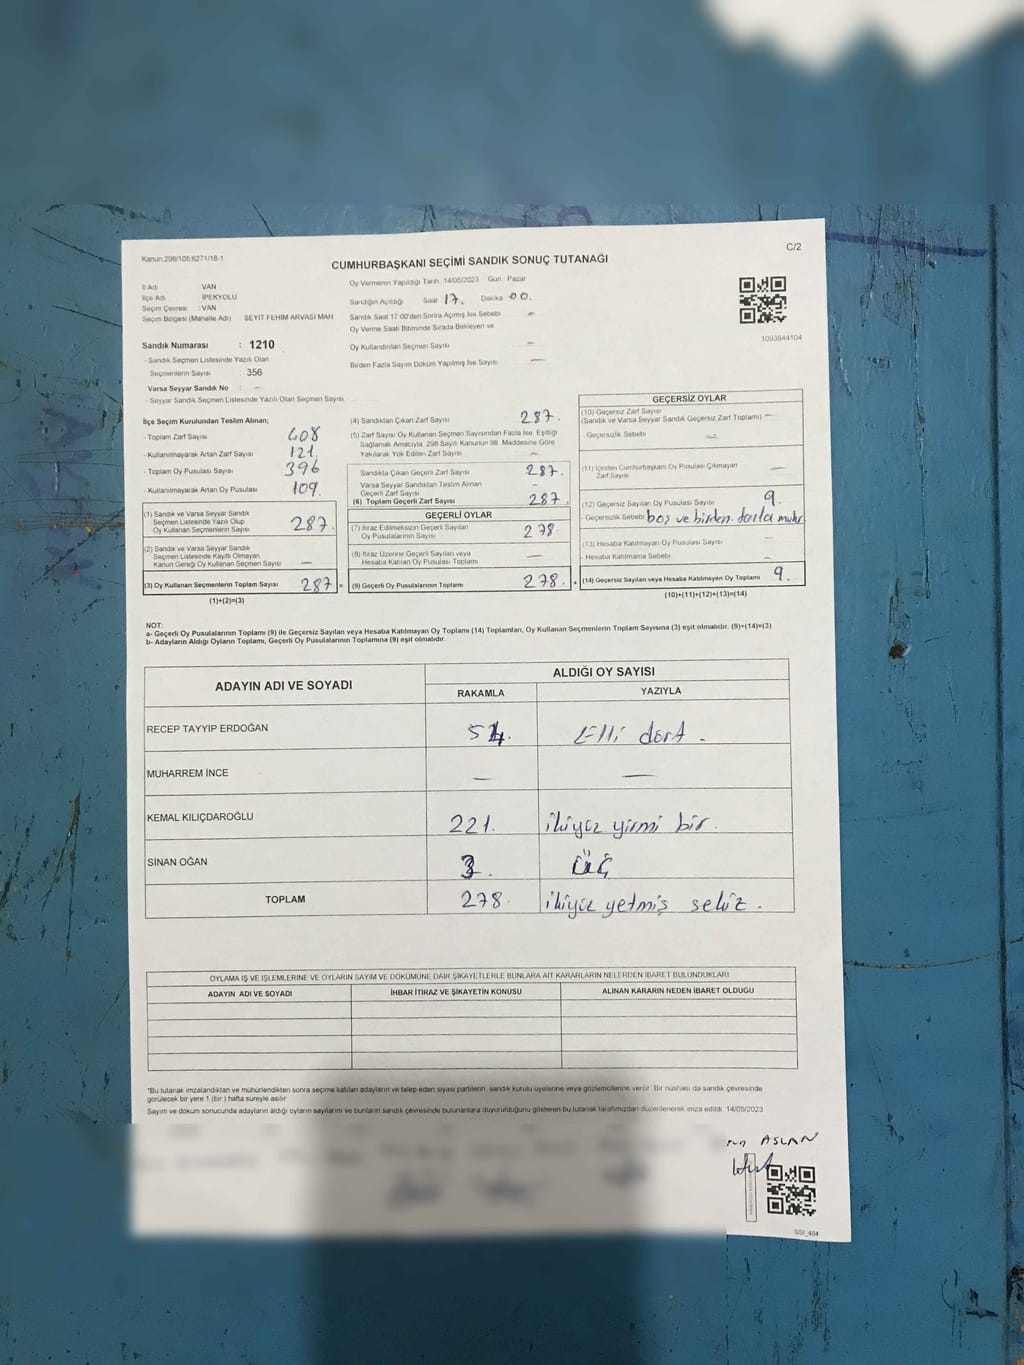 Kanun.298/105;6271/18-1
C/2
CUMHURBAŞKANI SEÇİMİ SANDIK SONUÇ TUTANAĞI
İl Adı : VAN
İlçe Adı : İPEKYOLU
Seçim Çevresi : VAN
Seçim Bölgesi (Mahalle Adı) : SEYİT FEHİM ARVASİ MAH
Sandık Numarası : 1210
- Sandık Seçmen Listesinde Yazılı Olan
Seçmenlerin Sayısı : 356
Varsa Seyyar Sandık No : -
- Seyyar Sandık Seçmen Listesinde Yazılı Olan Seçmen Sayısı
Oy Vermenin Yapıldığı Tarih :14/05/2023 Gün : Pazar
Sandığın Açıldığı Saat 17. Dakika 00.
Sandık Saat 17:00'den Sonra Açımış İse Sebebi -
Oy Verme Saati Bitiminde Sırada Bekleyen ve
Oy Kullandırılan Seçmen Sayısı -
Birden Fazla Sayım Döküm Yapılmış İse Sayısı -
1093644104
İlçe Seçim Kurulundan Teslim Alınan;
- Toplam Zarf Sayısı 408
- Kullanılmayarak Artan Zarf Sayısı 121.
- Toplam Oy Pusulası Sayısı 396
- Kullanılmayarak Artan Oy Pusulası 109.
(1) Sandık ve Varsa Seyyar Sandık
Seçmen Listesinde Yazılı Olup
Oy Kullanan Seçmenlerin Sayısı 287.
(2) Sandık ve Varsa Seyyar Sandık
Seçmen Listesinde Kayıtlı Olmayan
Kanun Gereği Oy Kullanan Seçmen Sayısı -
(3) Oy Kullanan Seçmenlerin Toplam Sayısı 287 =
(1)+(2)=(3)
(4) Sandıktan Çıkan Zarf Sayısı 287.
(5) Zarf Sayısı Oy Kullanan Seçmen Sayısından Fazla İse, Eşitliği
Sağlamak Amacıyla, 298 Sayılı Kanunun 98. Maddesine Göre
Yakılarak Yok Edilen Zarf Sayısı -
Sandıkta Çıkan Geçerli Zarf Sayısı 287.
Varsa Seyyar Sandıktan Teslim Alınan
Geçerli Zarf Sayısı -
(6) Toplam Geçerli Zarf Sayısı 287.
GEÇERLİ OYLAR
(7) İtiraz Edilmeksizin Geçerli Sayılan
Oy Pusulalarının Sayısı 278.
(8) İtiraz Üzerine Geçerli Sayılan veya
Hesaba Katılan Oy Pusulası Toplamı -
(9) Geçerli Oy Pusulalarının Toplamı 278. +
GEÇERSİZ OYLAR
(10) Geçersiz Zarf Sayısı
(Sandık ve Varsa Seyyar Sandık Geçersiz Zarf Toplamı) -
- Geçersizlik Sebebi -
(11) İçinden Cumhurbaşkanı Oy Pusulası Çıkmayan
Zarf Sayısı -
(12) Geçersiz Sayılan Oy Pusulası Sayısı 9.
- Geçersizlik Sebebi boş ve birden fazla mühr
(13) Hesaba Katılmayan Oy Pusulası Sayısı -
- Hesaba Katılmama Sebebi -
(14) Geçersiz Sayılan veya Hesaba Katılmayan Oy Toplamı 9.
(10)+(11)+(12)+(13)=(14)
NOT:
a- Geçerli Oy Pusulalarının Toplamı (9) ile Geçersiz Sayılan veya Hesaba Katılmayan Oy Toplamı (14) Toplamları, Oy Kullanan Seçmenlerin Toplam Sayısına (3) eşit olmalıdır. (9)+(14)=(3)
b- Adayların Aldığı Oyların Toplamı, Geçerli Oy Pusulalarının Toplamına (9) eşit olmalıdır.
ADAYIN ADI VE SOYADI
ALDIĞI OY SAYISI
RAKAMLA YAZIYLA
RECEP TAYYİP ERDOĞAN 54. Elli dört .
MUHARREM İNCE - -
KEMAL KILIÇDAROĞLU 221. ikiyüz yirmi bir .
SİNAN OĞAN 3. ÜÇ
TOPLAM 278. ikiyüz yetmiş sekiz .
OYLAMA İŞ VE İŞLEMLERİNE VE OYLARIN SAYIM VE DÖKÜMÜNE DAİR ŞİKAYETLERLE BUNLARA AİT KARARLARIN NELERDEN İBARET BULUNDUKLARI
ADAYIN ADI VE SOYADI İHBAR İTİRAZ VE ŞİKAYETİN KONUSU ALINAN KARARIN NEDEN İBARET OLDUGU
*Bu tutanak imzalandıktan ve mühürlendikten sonra seçime katılan adayların ve talep eden siyasi partilerin sandık kurulu üyelerine veya gözlemcilerine verilir. Bir nüshası da sandık çevresinde
görülecek bir yere 1 (bir ) hafta süreyle asılır
Sayım ve döküm sonucunda adayların aldığı oyların sayılarını ve bunların sandık çevresinde bulunanlara duyurulduğunu gösteren bu tutanak tarafımızdan düzenlenerek imza edildi. 14/05/2023
ASLAN
SSI_404